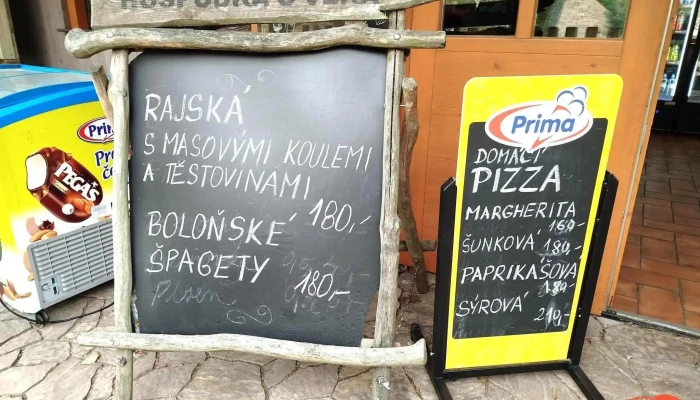 HOSPŮDKA U
RAJSKÁ
S MASOVÝMI KOULEMI
A TĚSTOVINAMI
180,-
BOLOŇSKÉ
ŠPAGETY
180,-
Prima
PEGAS
Prima
DOMÁCÍ
PIZZA
MARGHERITA
160,-
ŠUNKOVÁ 180,-
PAPRIKÁŠOVÁ
180,-
SÝROVÁ 210,-